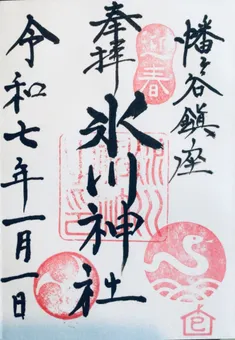 幡ヶ谷鎮座
奉拝
迎春
氷川神社
令和七年一月一日